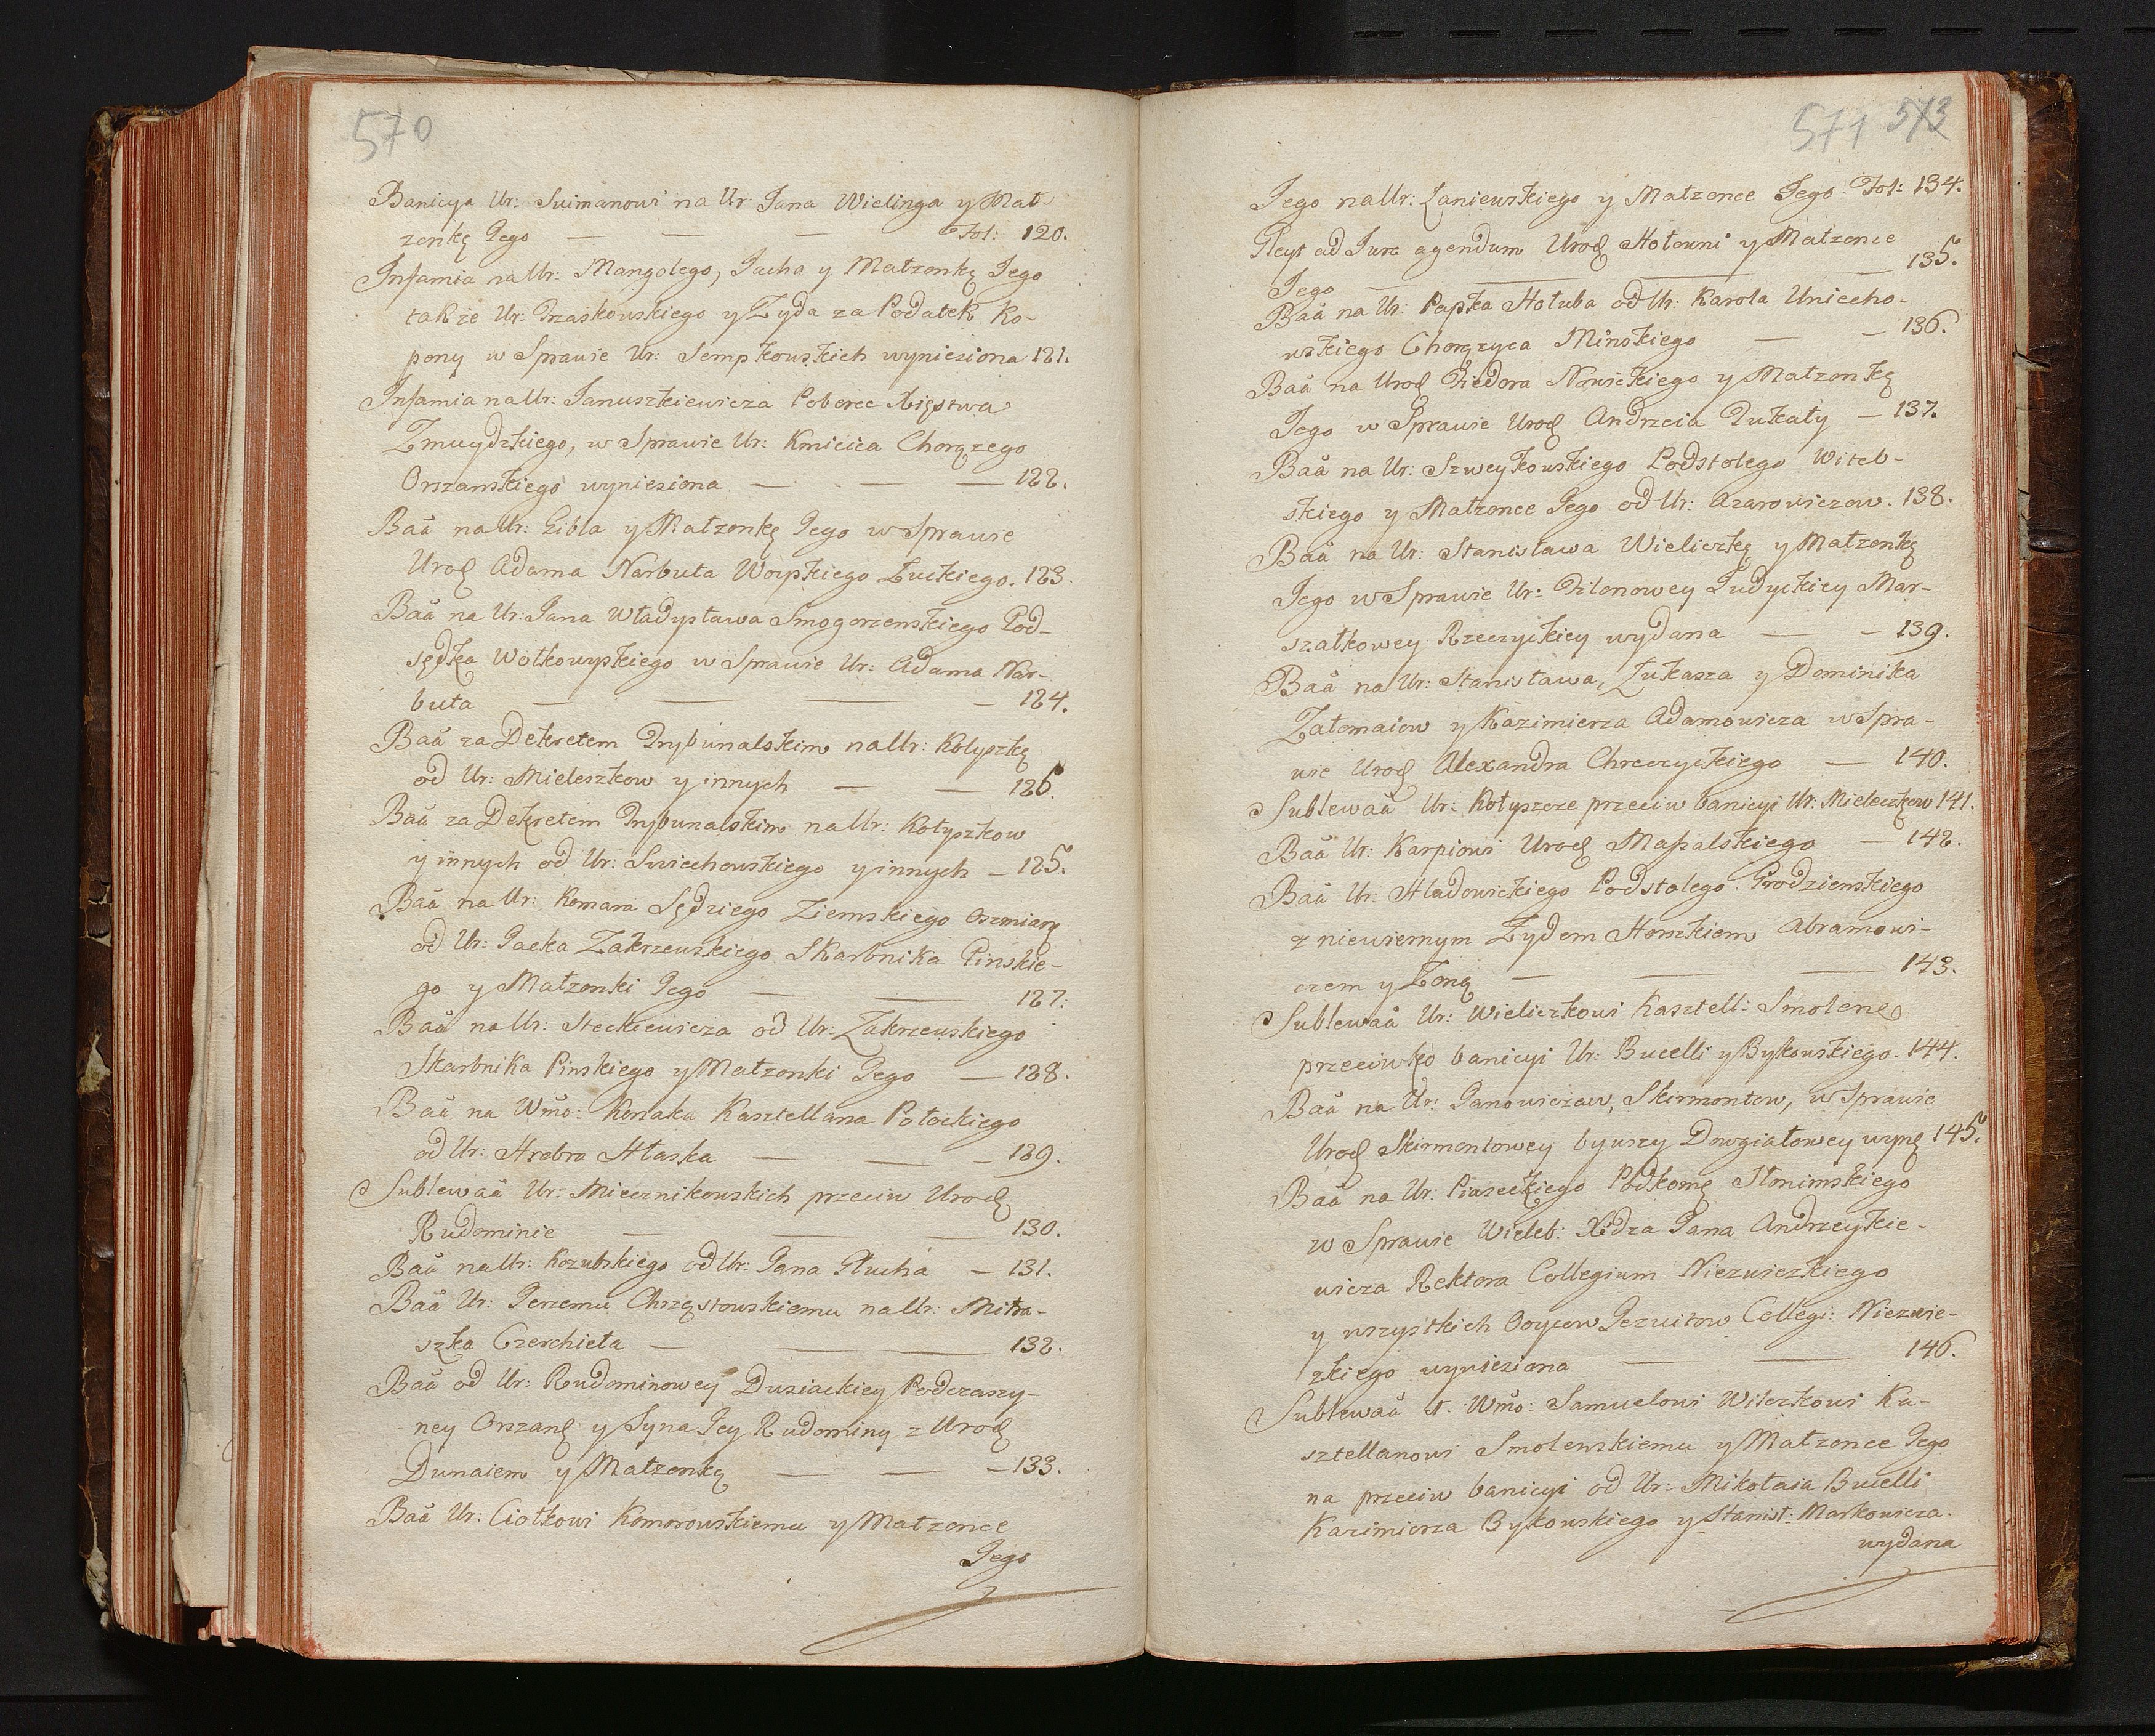 570
Banicya Ur: Suimanowi na Ur: Jana Wielinga y Mał-
zonkę Jego — — — Fol: 120.
Infamia na Ur: Mangolego, Jacha y Małzonkę Jego
także Ur: Praskowskiego y Zyda za Podatek Ko-
pony w Sprawie Ur: Sempkowskich wyniesiona 121.
Infamia na Ur: Januszkiewicza Poborcę Xięstwa
Zmuydzkiego, w Sprawie Ur: Kmicica Chorązego
Orszanskiego wyniesiona — — — 122.
Baã na Ur: Gibla y Małzonkę Jego w Sprawie
Urod Adama Narbuta Woyskiego Łuckiego. 123.
Baã na Ur: Jana Władysława Smogorzewskiego Pod-
sędka Wołkowyskiego w Sprawie Ur: Adama Nar-
buta — — — — 124.
Baã za Dekretem Trybunalskim na Ur: Kołyszkę
od Ur: Mieleszkow y innych — — 126.
Baã za Dekretem Trybunalskim na Ur: Kołyszkow
y innych od Ur: Swiechowskiego y innych — 125.
Baã na Ur: Komara Sędziego Ziemskiego Oszmian
od Ur: Jacka Zakrzewskiego Skarbnika Pinskie-
go y Małzonki Jego — — 127.
Baã na Ur: Steckiewicza od Ur: Zakrzewskiego
Skarbnika Pinskiego y Małzonki Jego — 128.
Baã na Wmõ: Korsaka Kasztellana Połockiego
od Ur: Hrebra Hłaska — — — 129.
Sublewaã Ur: Miecznikowskich przeciw Urod
Rudominie — — — 130.
Baã na Ur: Kozubskiego od Ur: Jana Głucha — 131.
Baã Ur: Jerzemu Chrząstowskiemu na Ur: Mitra-
szka Czerchieta — — — 132.
Baã od Ur: Rudominowey Dusiackiey Podczaszy-
ney Orszan y Syna Jey Rudominy z Urod
Dunaiem y Małzonką — — — 133.
Baã Ur: Ciołkowi Komorowskiemu y Małzonce
Jego
571 573
Jego na Ur: Zaniewskiego y Małzonce Jego Fol: 134.
Gleyt ad Jura agendum Urod Hołowni y Małzonce
Jego — — — 135.
Baã na Ur: Paska Hołuba od Ur: Karola Uniecho-
wskiego Chorązyca Minskiego — — 136.
Baã na Urod Fiedora Nowickiego y Małzonkę
Jego w Sprawie Urod Andrzeia Dukały — 137.
Baã na Ur: Szweykowskiego Podstolego Witeb-
skiego y Małzonce Jego od Ur: Azarowiczow. 138.
Baã na Ur: Stanisława Wieliczkę y Małzonkę
Jego w Sprawie Ur: Filonowey Judyckiey Mar-
szałkowey Rzeczyckiey wydana — — 139.
Baã na Ur: Stanisława, Łukasza y Dominika
Załomaiow y Kazimierza Adamowicza w Spra-
wie Urod Alexandra Chreczyckiego — 140.
Sublewaã Ur: Kołyszcze przeciw banicyi Ur: Mieleszkow 141.
Baã Ur: Karpiowi Urod Massalskiego — 142.
Baã Ur: Hladowickiego Podstolego Grodzienskiego
z niewiernym Zydem Horszkiem Abramowi-
czem y Zoną — — — 143.
Sublewaã Ur: Wieliczkowi Kasztell: Smolens
przeciwko banicyi Ur: Bucelli y Bykowskiego. 144.
Baã na Ur: Janowiczow, Skirmontow, w Sprawie
Urod Skirmontowey bywszy Dowgiałowey wyn 145.
Baã na Ur: Piaseckiego Podkom Słonimskiego
w Sprawie Wieleb: Xdza Jana Andrzeykie-
wicza Rektora Collegium Nieswiezkiego
y wszystkich Ooycow Jezuitow Collegi: Niezwie-
zkiego wyniesiona — — 146.
Sublewaã t. Wmõ: Samuelowi Wilczkowi Ka-
sztellanowi Smolenskiemu y Małzonce Jego
na przeciw banicyi od Ur: Mikołaia Bucelli
Kazimierza Bykowskiego y Stanisł: Markowicza.
wydana